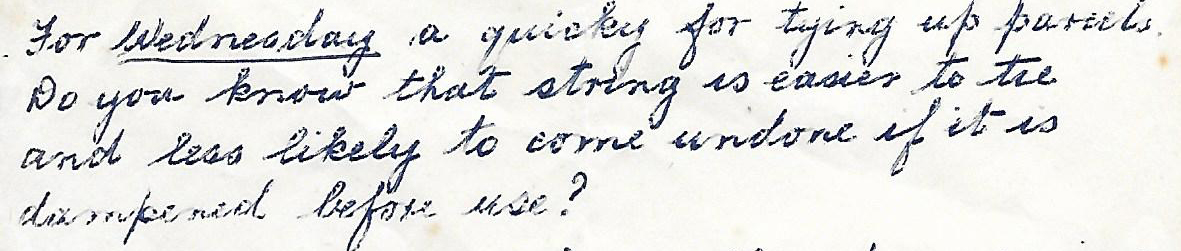 For Wednesday a quicky for tying up parcels.
Do you know that string is easier to tie
and less likely to come undone if it is
dampened before use?